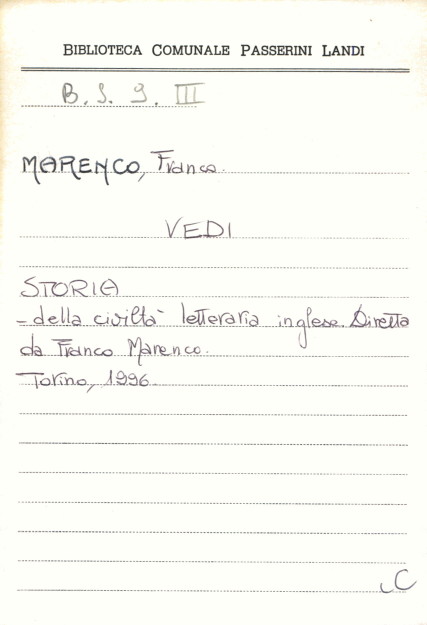 BIBLIOTECA COMUNALE PASSERINI LANDI
B. S. 9. III
MARENCO, Franco.
VEDI
STORIA
- della civiltà letteraria inglese. Diretta
da Franco Marenco.
Torino, 1996.
C